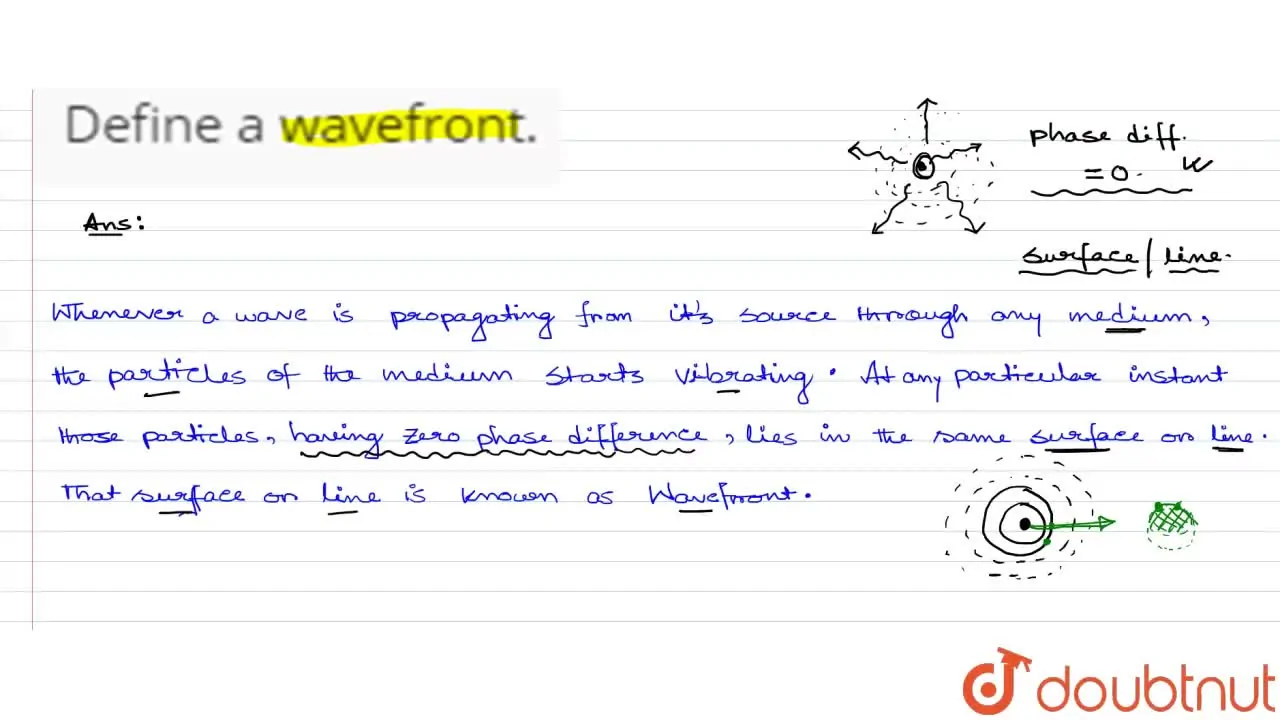 Define a wavefront.
phase diff.
= 0.
Ans:
surface / line.
Whenever a wave is propagating from it's source through any medium,
the particles of the medium starts vibrating. At any particular instant
those particles, having zero phase difference, lies in the same surface or line.
That surface or line is known as Wavefront.
doubtnut